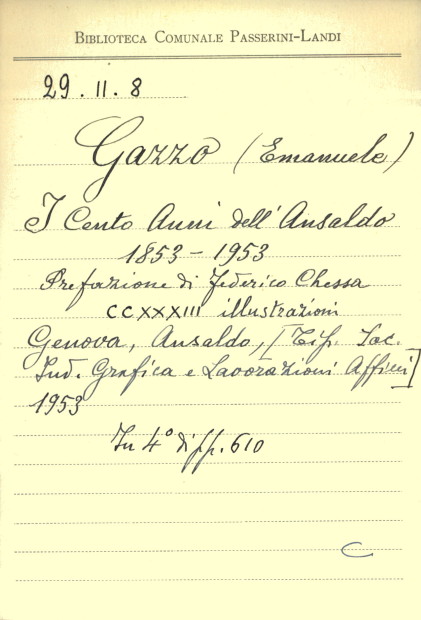 BIBLIOTECA COMUNALE PASSERINI-LANDI
29.11.8
Gazzo (Emanuele)
I Cento Anni dell'Ansaldo
1853-1953
Prefazione di Federico Chessa
CCXXXIII illustrazioni
Genova, Ansaldo, [Tip. Soc.
Ind. Grafica e Lavorazioni Affini]
1953
In 4° di pp. 610
C